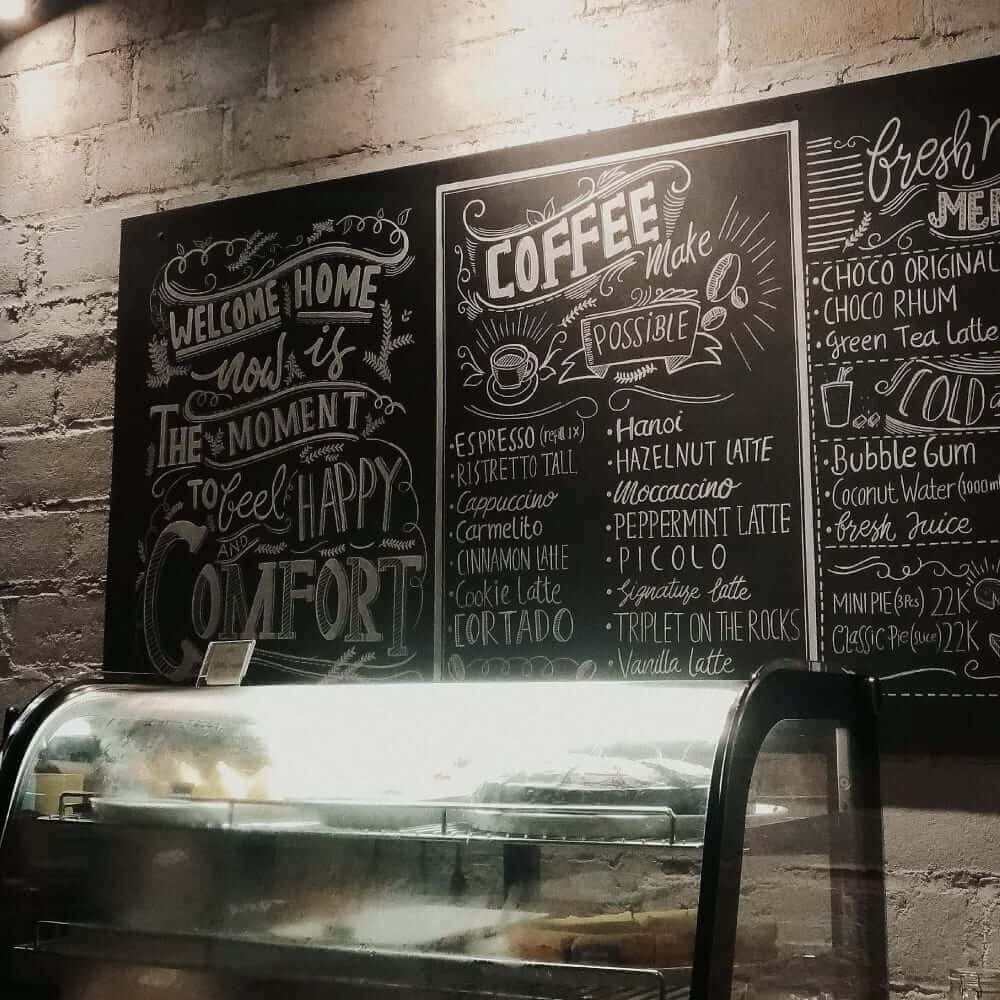 WELCOME HOME
now is
THE MOMENT
TO feel HAPPY
AND
COMFORT
COFFEE
Make
POSSIBLE
• ESPRESSO (refill 1x)
• RISTRETTO TALL
• Cappuccino
• Carmelito
• CINNAMON LATTE
• Cookie Latte
• CORTADO
• Hanoi
• HAZELNUT LATTE
• Moccaccino
• PEPPERMINT LATTE
• PICOLO
• Signature latte
• TRIPLET ON THE ROCKS
• Vanilla Latte
fresh
• CHOCO ORIGINAL
• CHOCO RHUM
• Green Tea Latte
COLD
• Bubble Gum
• Coconut Water (1000 ml
• fresh Juice
MINI PIE (3Pcs) 22K
Classic Pie (slice) 22K